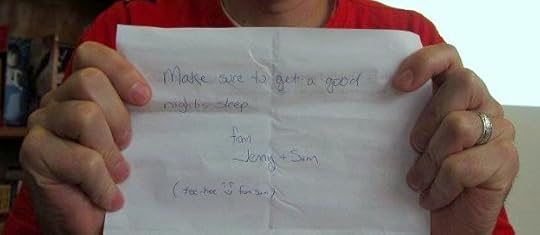 Make sure to get a good
nights sleep
from
Jenny + Sam
(tee-hee from Sam)